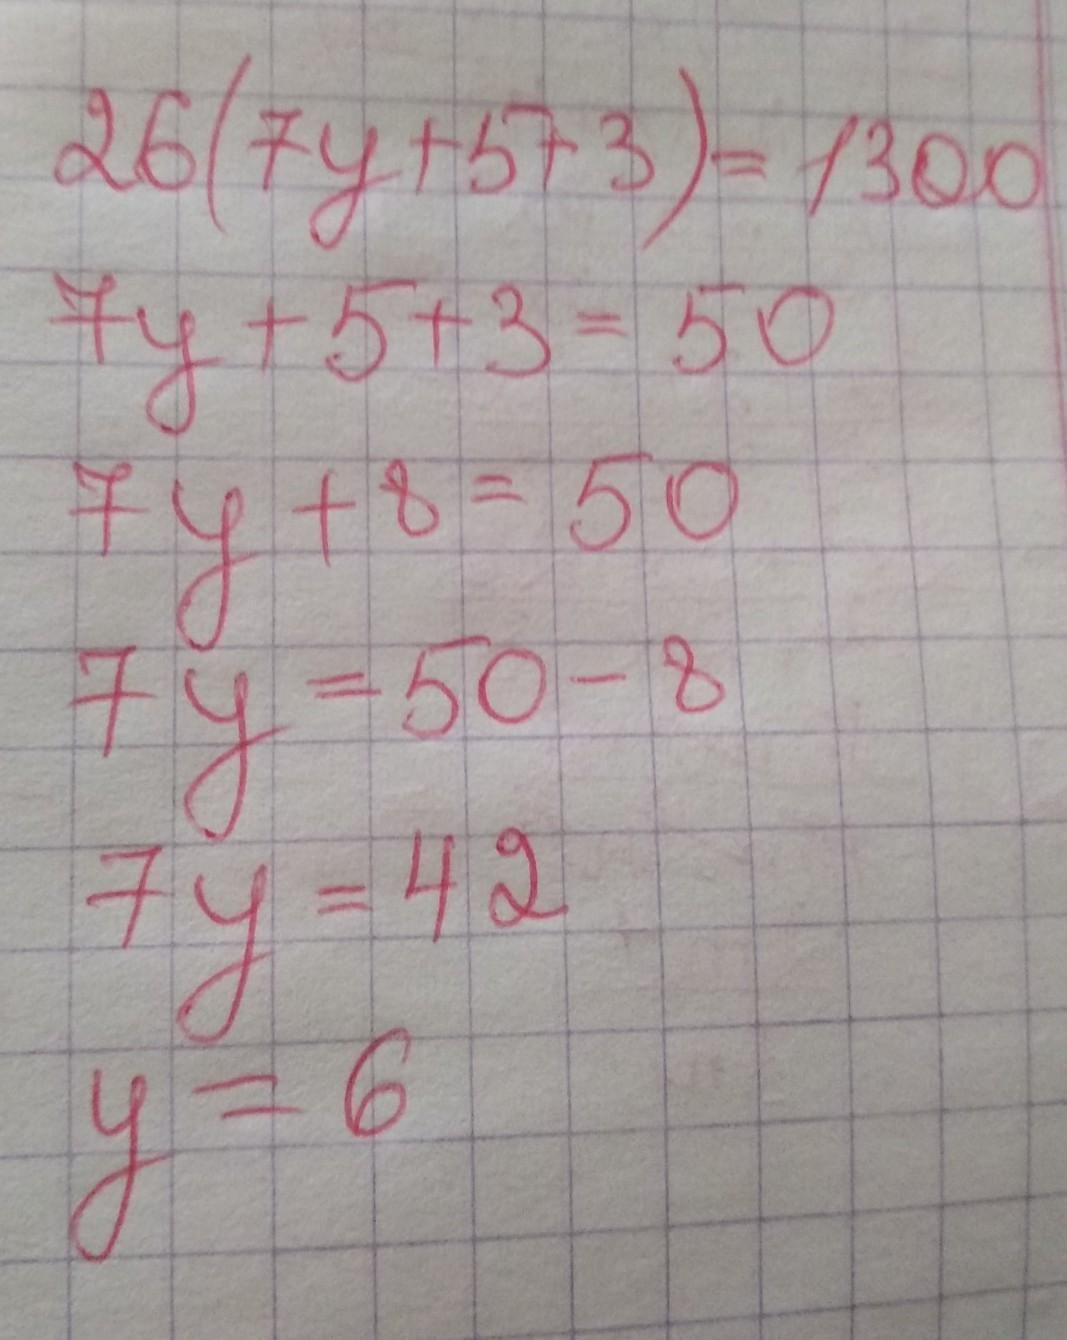 26(7y+5+3)=1300
7y+5+3=50
7y+8=50
7y=50-8
7y=42
y=6